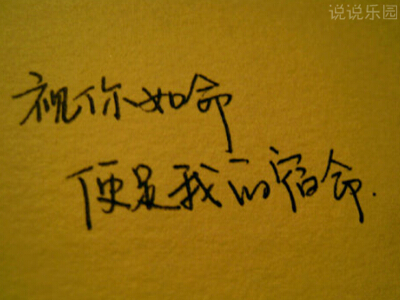 说说乐园
视你如命
便是我的宿命.